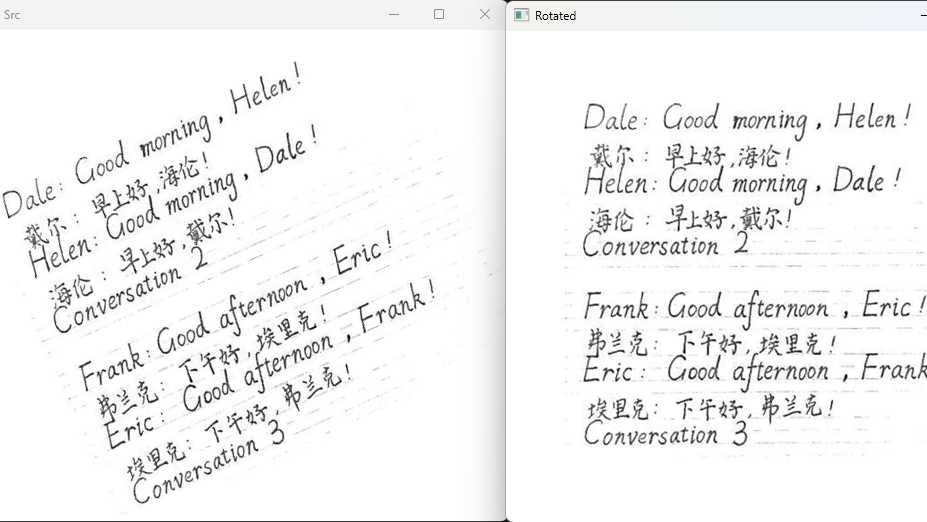 Src
Dale: Good morning, Helen!
戴尔：早上好,海伦!
Helen: Good morning, Dale!
海伦：早上好,戴尔!
Conversation 2
Frank: Good afternoon, Eric!
弗兰克：下午好,埃里克!
Eric: Good afternoon, Frank!
埃里克：下午好,弗兰克!
Conversation 3
Rotated
Dale: Good morning, Helen!
戴尔：早上好,海伦!
Helen: Good morning, Dale!
海伦：早上好,戴尔!
Conversation 2
Frank: Good afternoon, Eric!
弗兰克：下午好,埃里克!
Eric: Good afternoon, Frank
埃里克：下午好,弗兰克!
Conversation 3